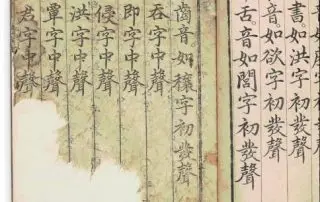 書。如洪字初發聲
音。如欲字初發聲
舌。音如閭字初發聲
齒音。如穰字初發聲
呑字中聲
即字中聲
侵字中聲
洪字中聲
覃字中聲
君字中聲